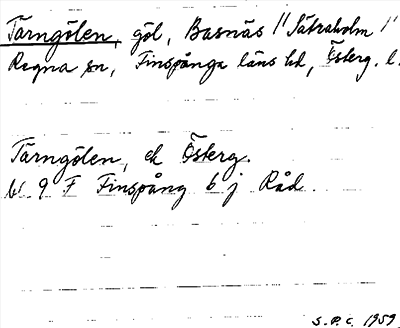 Tärngölen, göl, Basnäs // Sätraholm //
Regna sn, Finspånga läns hd, Österg. l.
Tärngölen, ek Österg.
bl. 9 F Finspång 6 j Råd.
S.P.C. 1959